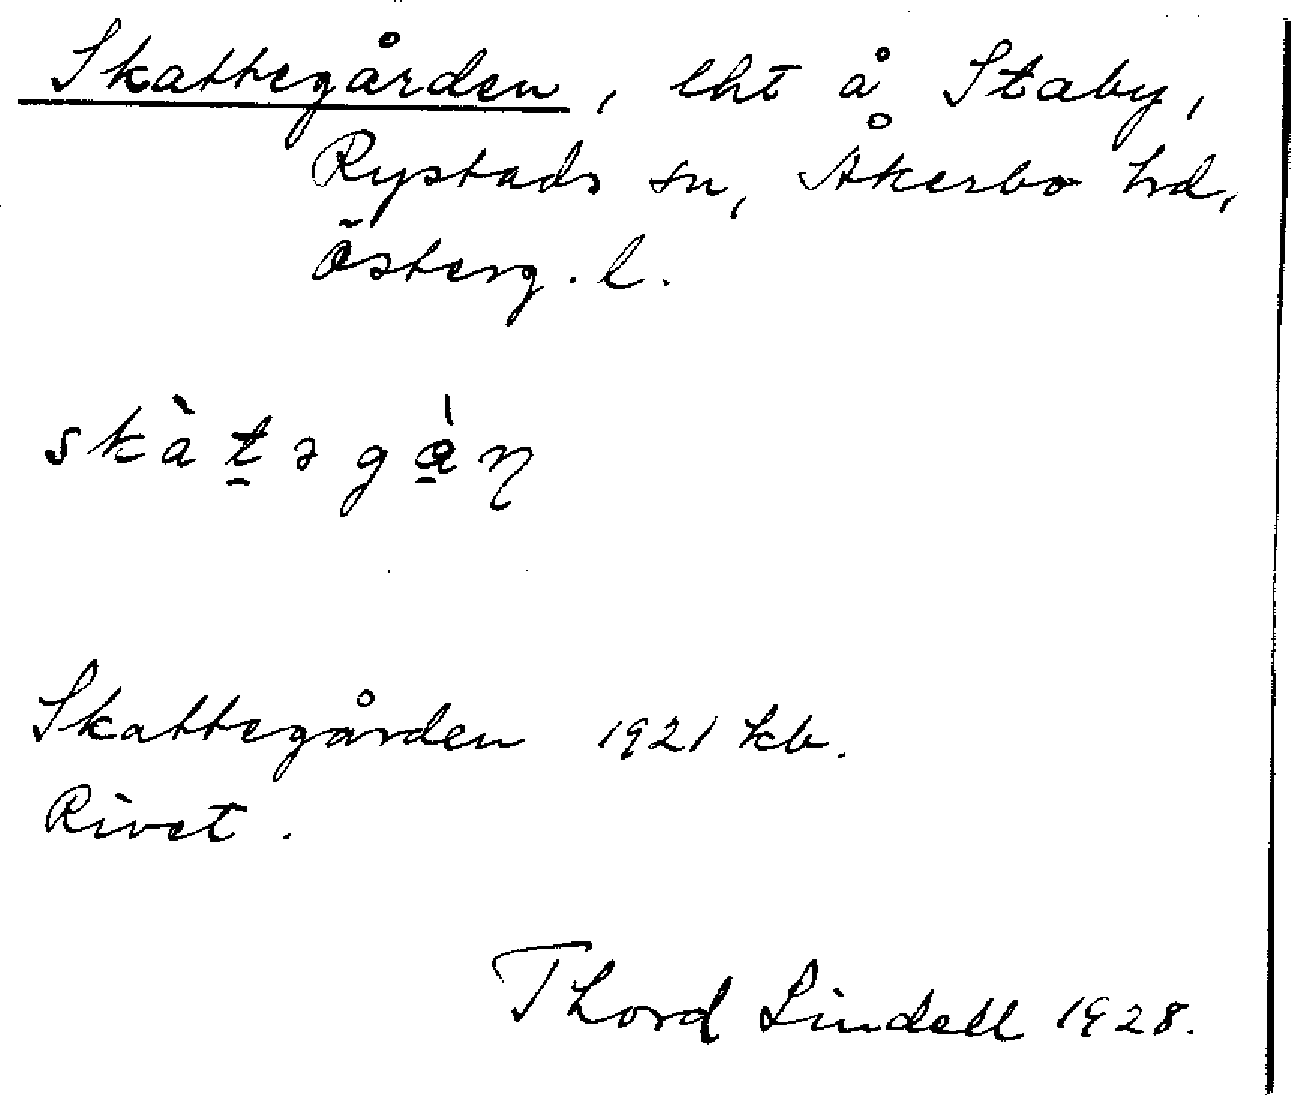 Skattegården, lht å Staby,
Rystads sn, Åkerbo hd,
Österg. l.
skàt̠əgὰ̠n̥
Skattegården 1921 kb.
Rivet.
Thord Lindell 1928.